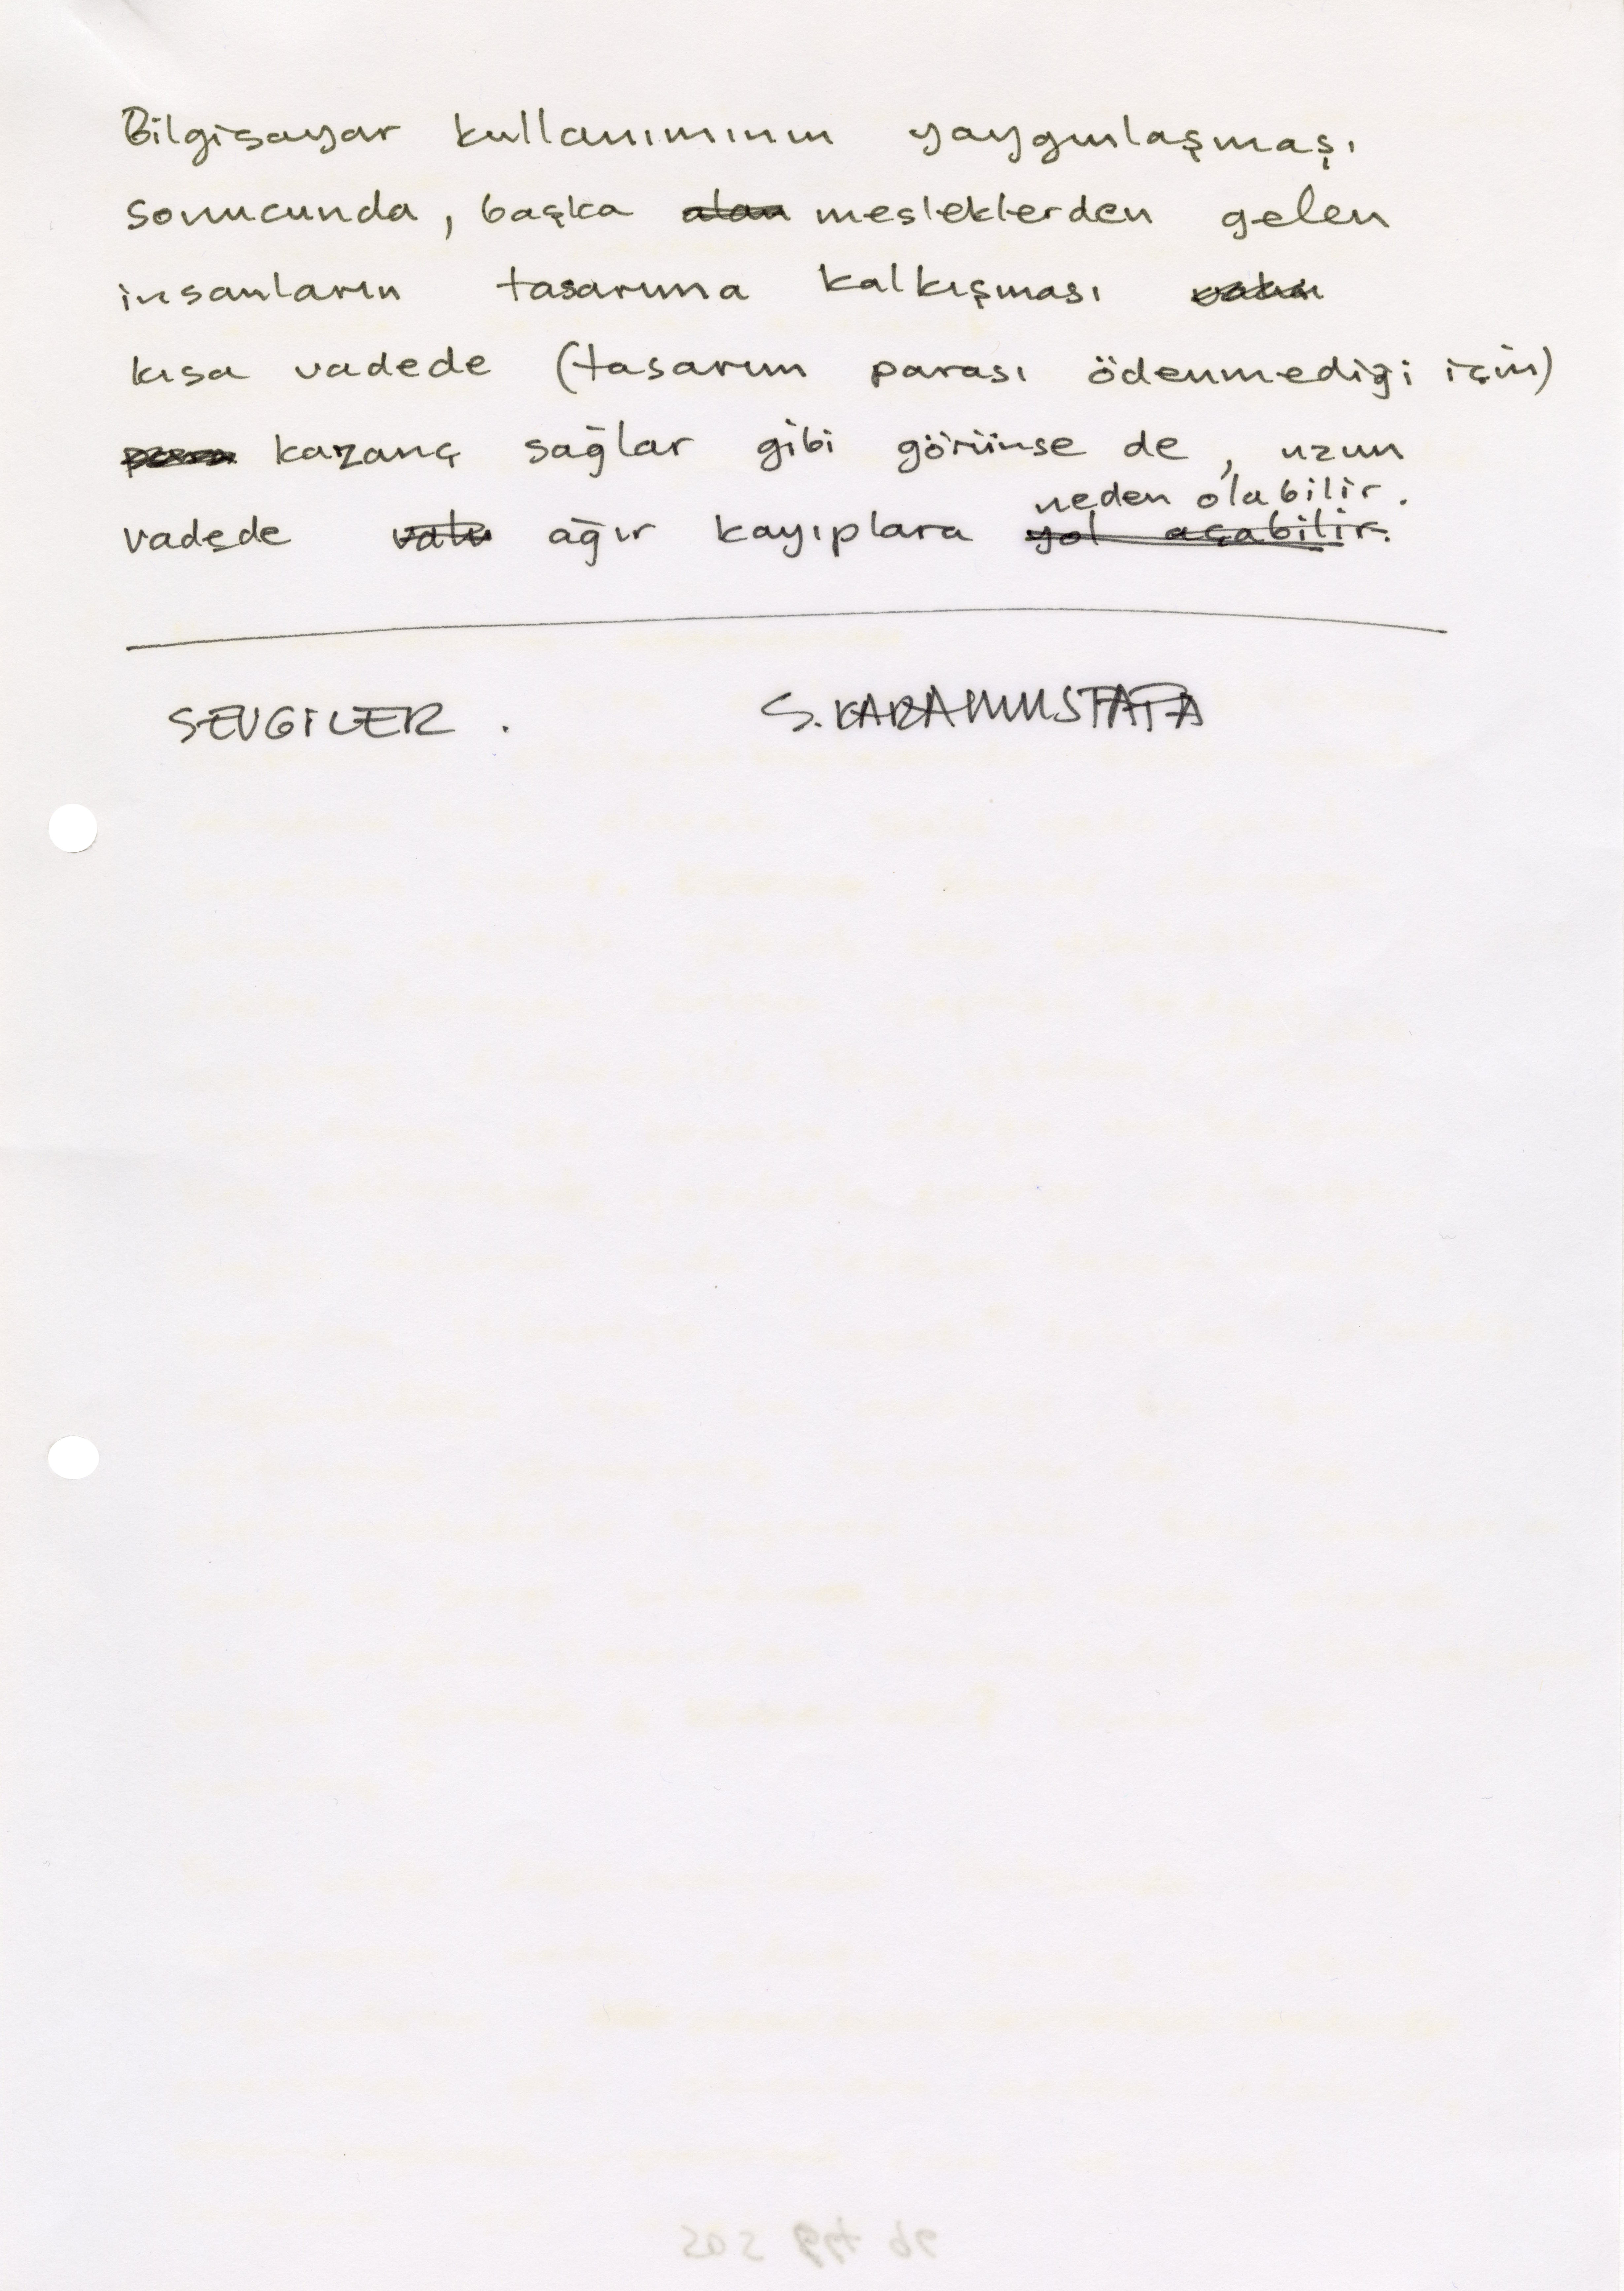 Bilgisayar kullanımının yaygınlaşması
sonucunda, başka alan mesleklerden gelen
insanların tasarıma kalkışması
kısa vadede (tasarım parası ödenmediği için)
para kazanç sağlar gibi görünse de, uzun
neden olabilir.
vadede ağır kayıplara yol açabilir.
SEVGİLER. S. KARAMUSTAFA